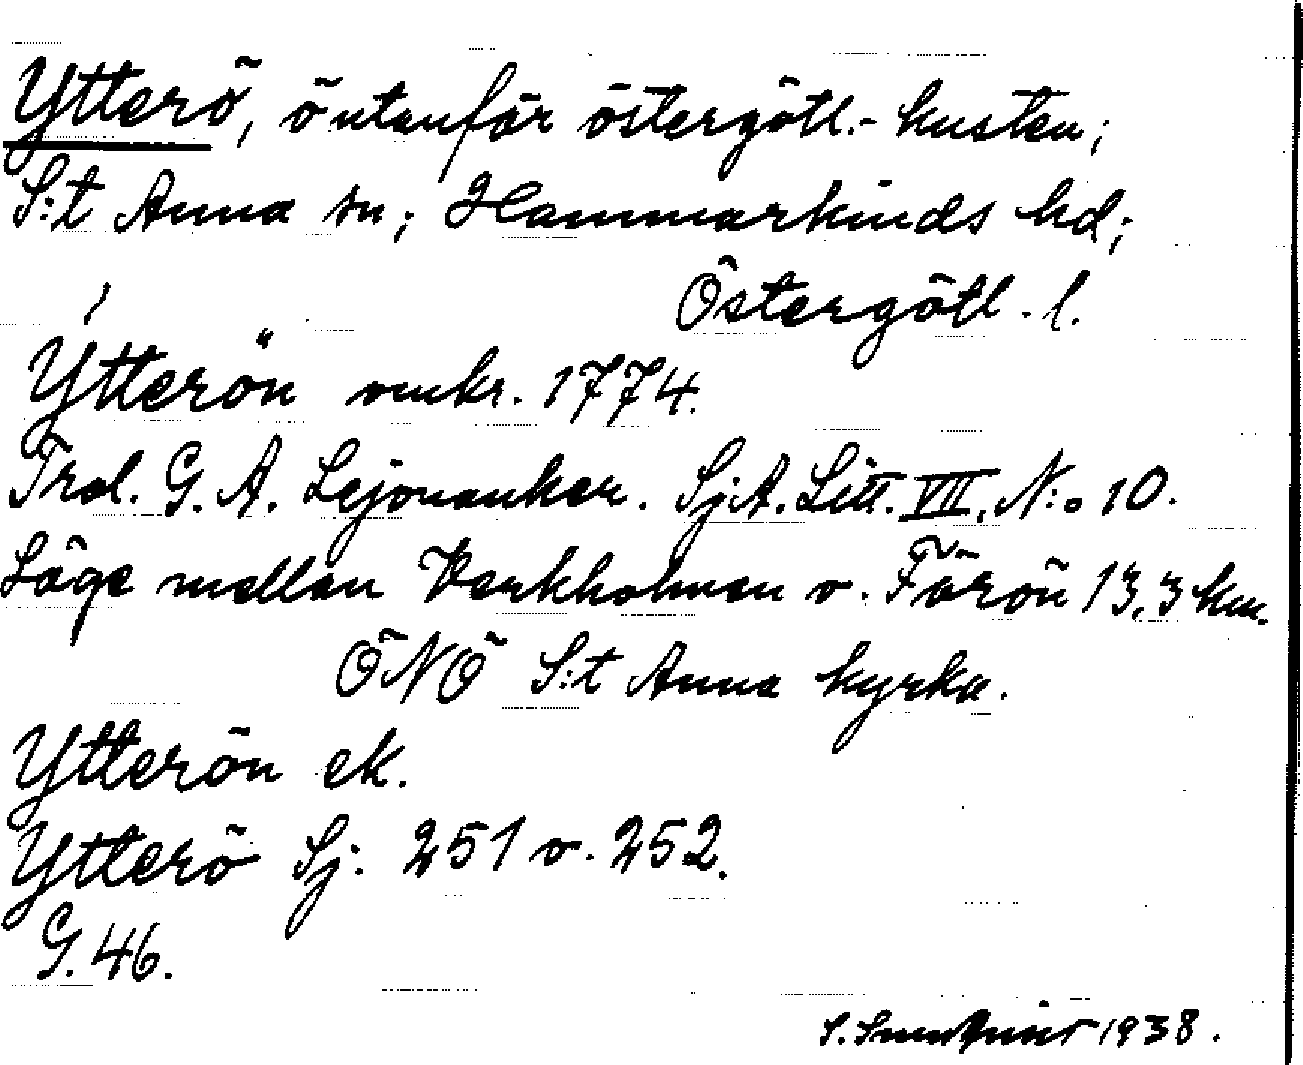 Ytterö, ö utanför östergötl.- kusten;
S:t Anna sn; Hammarkinds hd;
Östergötl. l.
Ytterön omkr. 1774.
Trol. G. A. Lejonanker. Sj.A. Litt. VII. N:o 10.
Läge mellan Verkholmen o. Färön 13,3 km.
ÖNÖ S:t Anna kyrka.
Ytterön ek.
Ytterö Sj. 251 o. 252.
G. 46.
S. 1938.